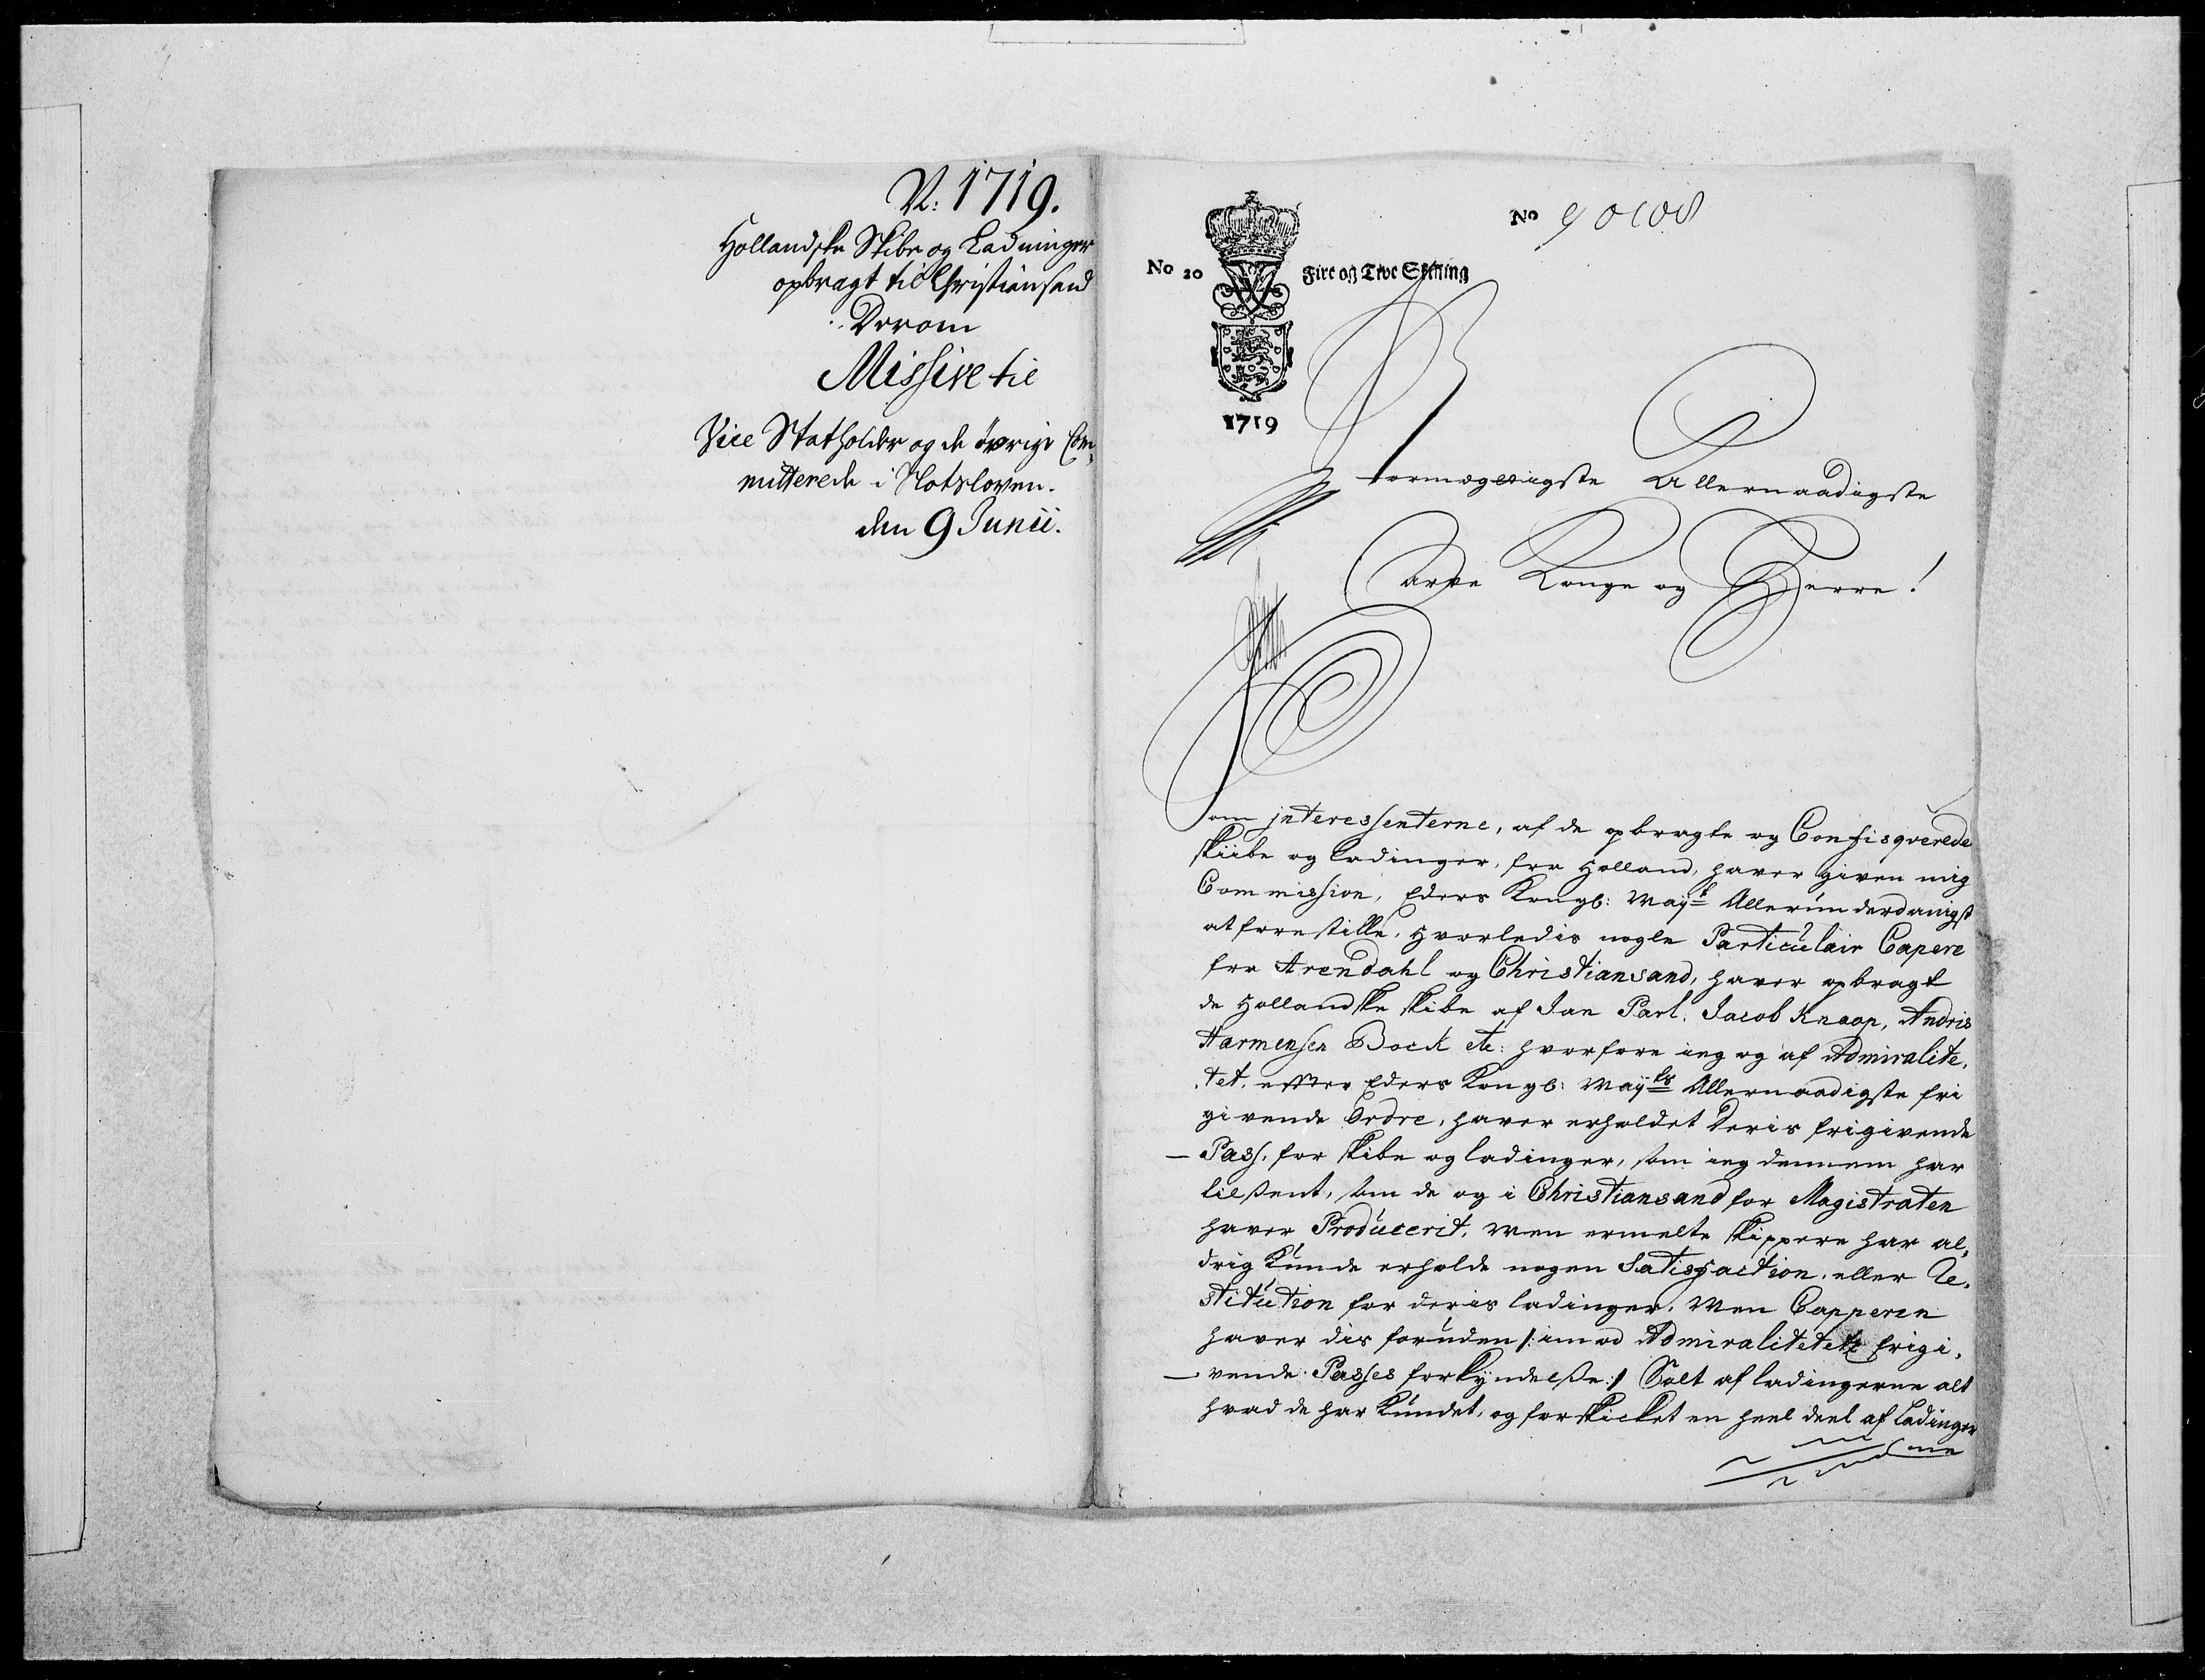 N: 1719.
Hollandske Skibe og Ladninger
opbragt til Christiansand
Derom
Missive til
Vice Statholder og de øvrige Com,
mitterede i Slotsloven.
den 9 Junii.
No 20
Fire og Tive Skilling
No 90108
1719
Stormægtigste Allernaadigste
Arve Konge og Herre!
Som jnteressenterne, af de opbragte og Confisqverede
skiibe og ladinger, fra Holland, haver given mig
Commission, Eders Kongl: Mayt Allerunderdanigst
at forestille, hvorledis nogle Particulair Capere
fra Arendahl og Christiansand, haver opbragt
de Hollandske skibe af Jan Parl, Jacob Knaap, Andris
Harmensen Bock etc: hvorfore ieg og af Admiralite,
tet, effter Eders Kongl: Mayts Allernaadigste fri
givende Ordre, haver erholdet deris frigivende
Pass, for skibe og ladinger, som ieg dennem har
tilsent, som de og i Christiansand for Magistraten
haver Producerit, Men ermelte skippere har al,
drig kunde erholde nogen Satisfaction, eller Re,
stitution for deris ladinger, Men Capperen
haver dis foruden /: imod Admiralitetets frigi,
vende Passes forkyndelse :/ Solt af ladingerne alt
hvad de har kundet, og forskicket en heel deel af Ladinger
ne